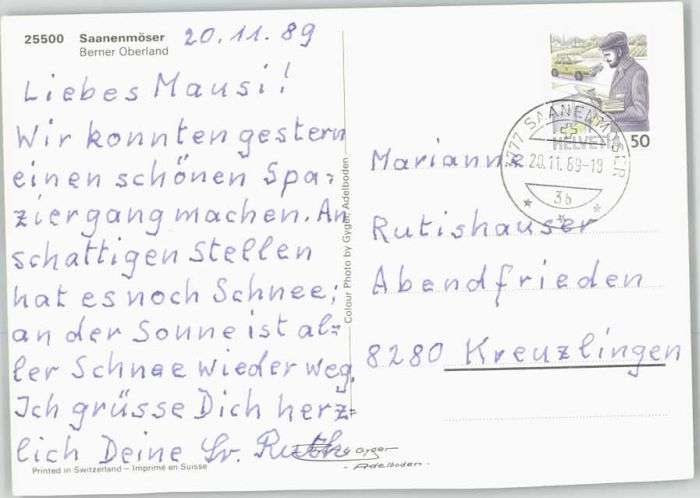 25500 Saanenmöser 20.11.89
Berner Oberland
Liebes Mausi!
Wir konnten gestern
einen schönen Spa=
ziergang machen. An
schattigen Stellen
hat es noch Schnee;
an der Sonne ist al=
ler Schnee wieder weg.
Ich grüsse Dich herz=
lich Deine Sr. Ruth
Printed in Switzerland – Imprimé en Suisse
Colour Photo by Gyger, Adelboden
Gyger
- Adelboden -
HELVETIA
50
3777 SAANENMÖSER
20.11.89-19
3b
Marianne
Rutishauser
Abendfrieden
8280 Kreuzlingen